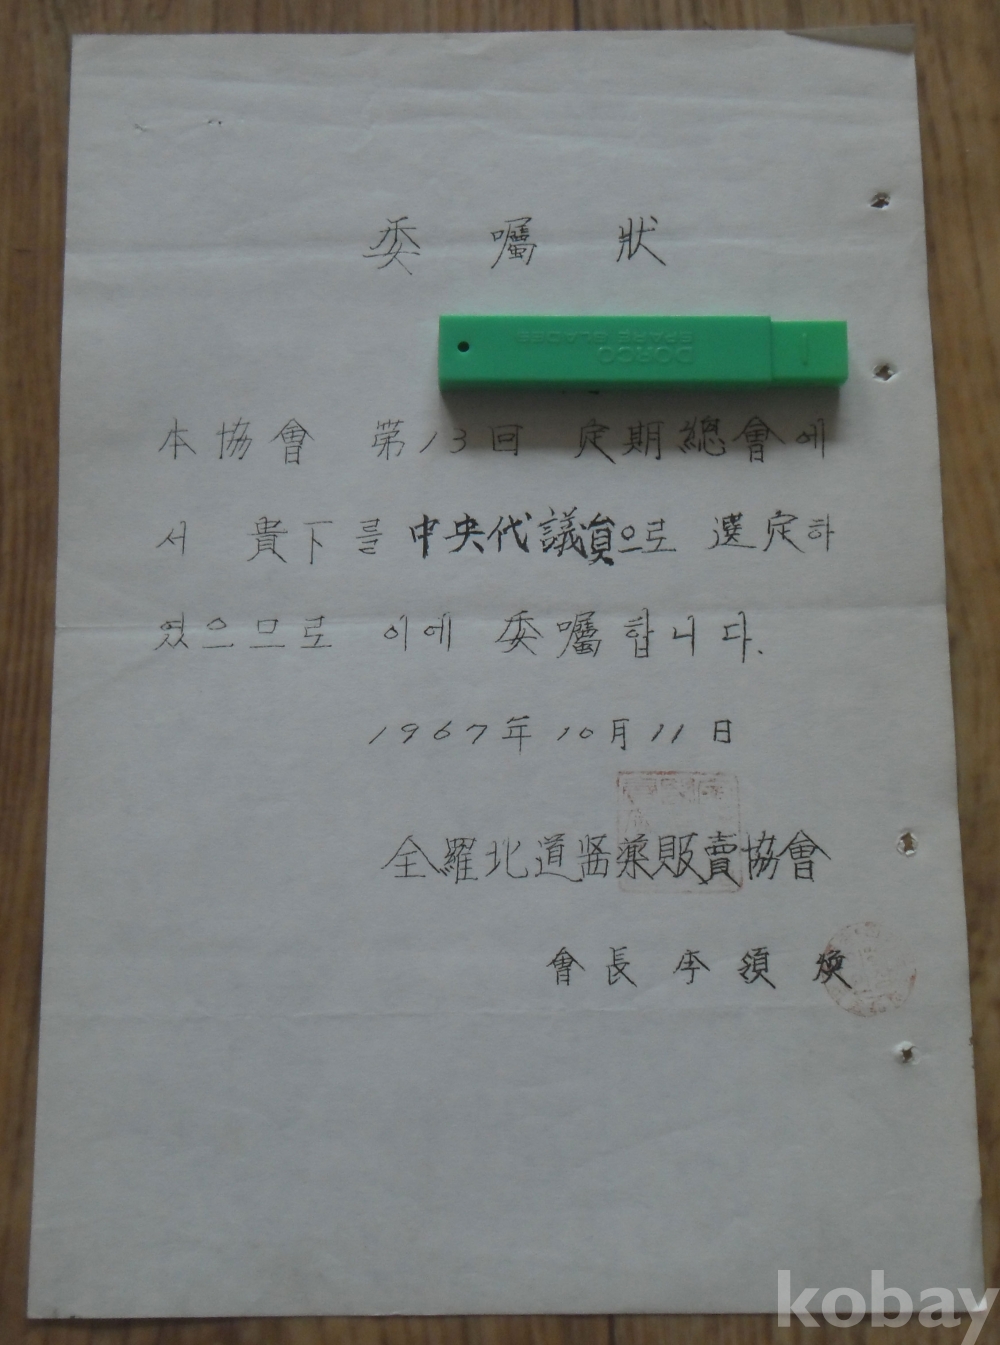 委囑狀
DORCO
SPARE BLADES
本協會 第13回 定期總會에
서 貴下를 中央代議員으로 選定하
였으므로 이에 委囑합니다.
1967年 10月 11日
全羅北道醫藥販賣協會
會長 李須煥
kobay